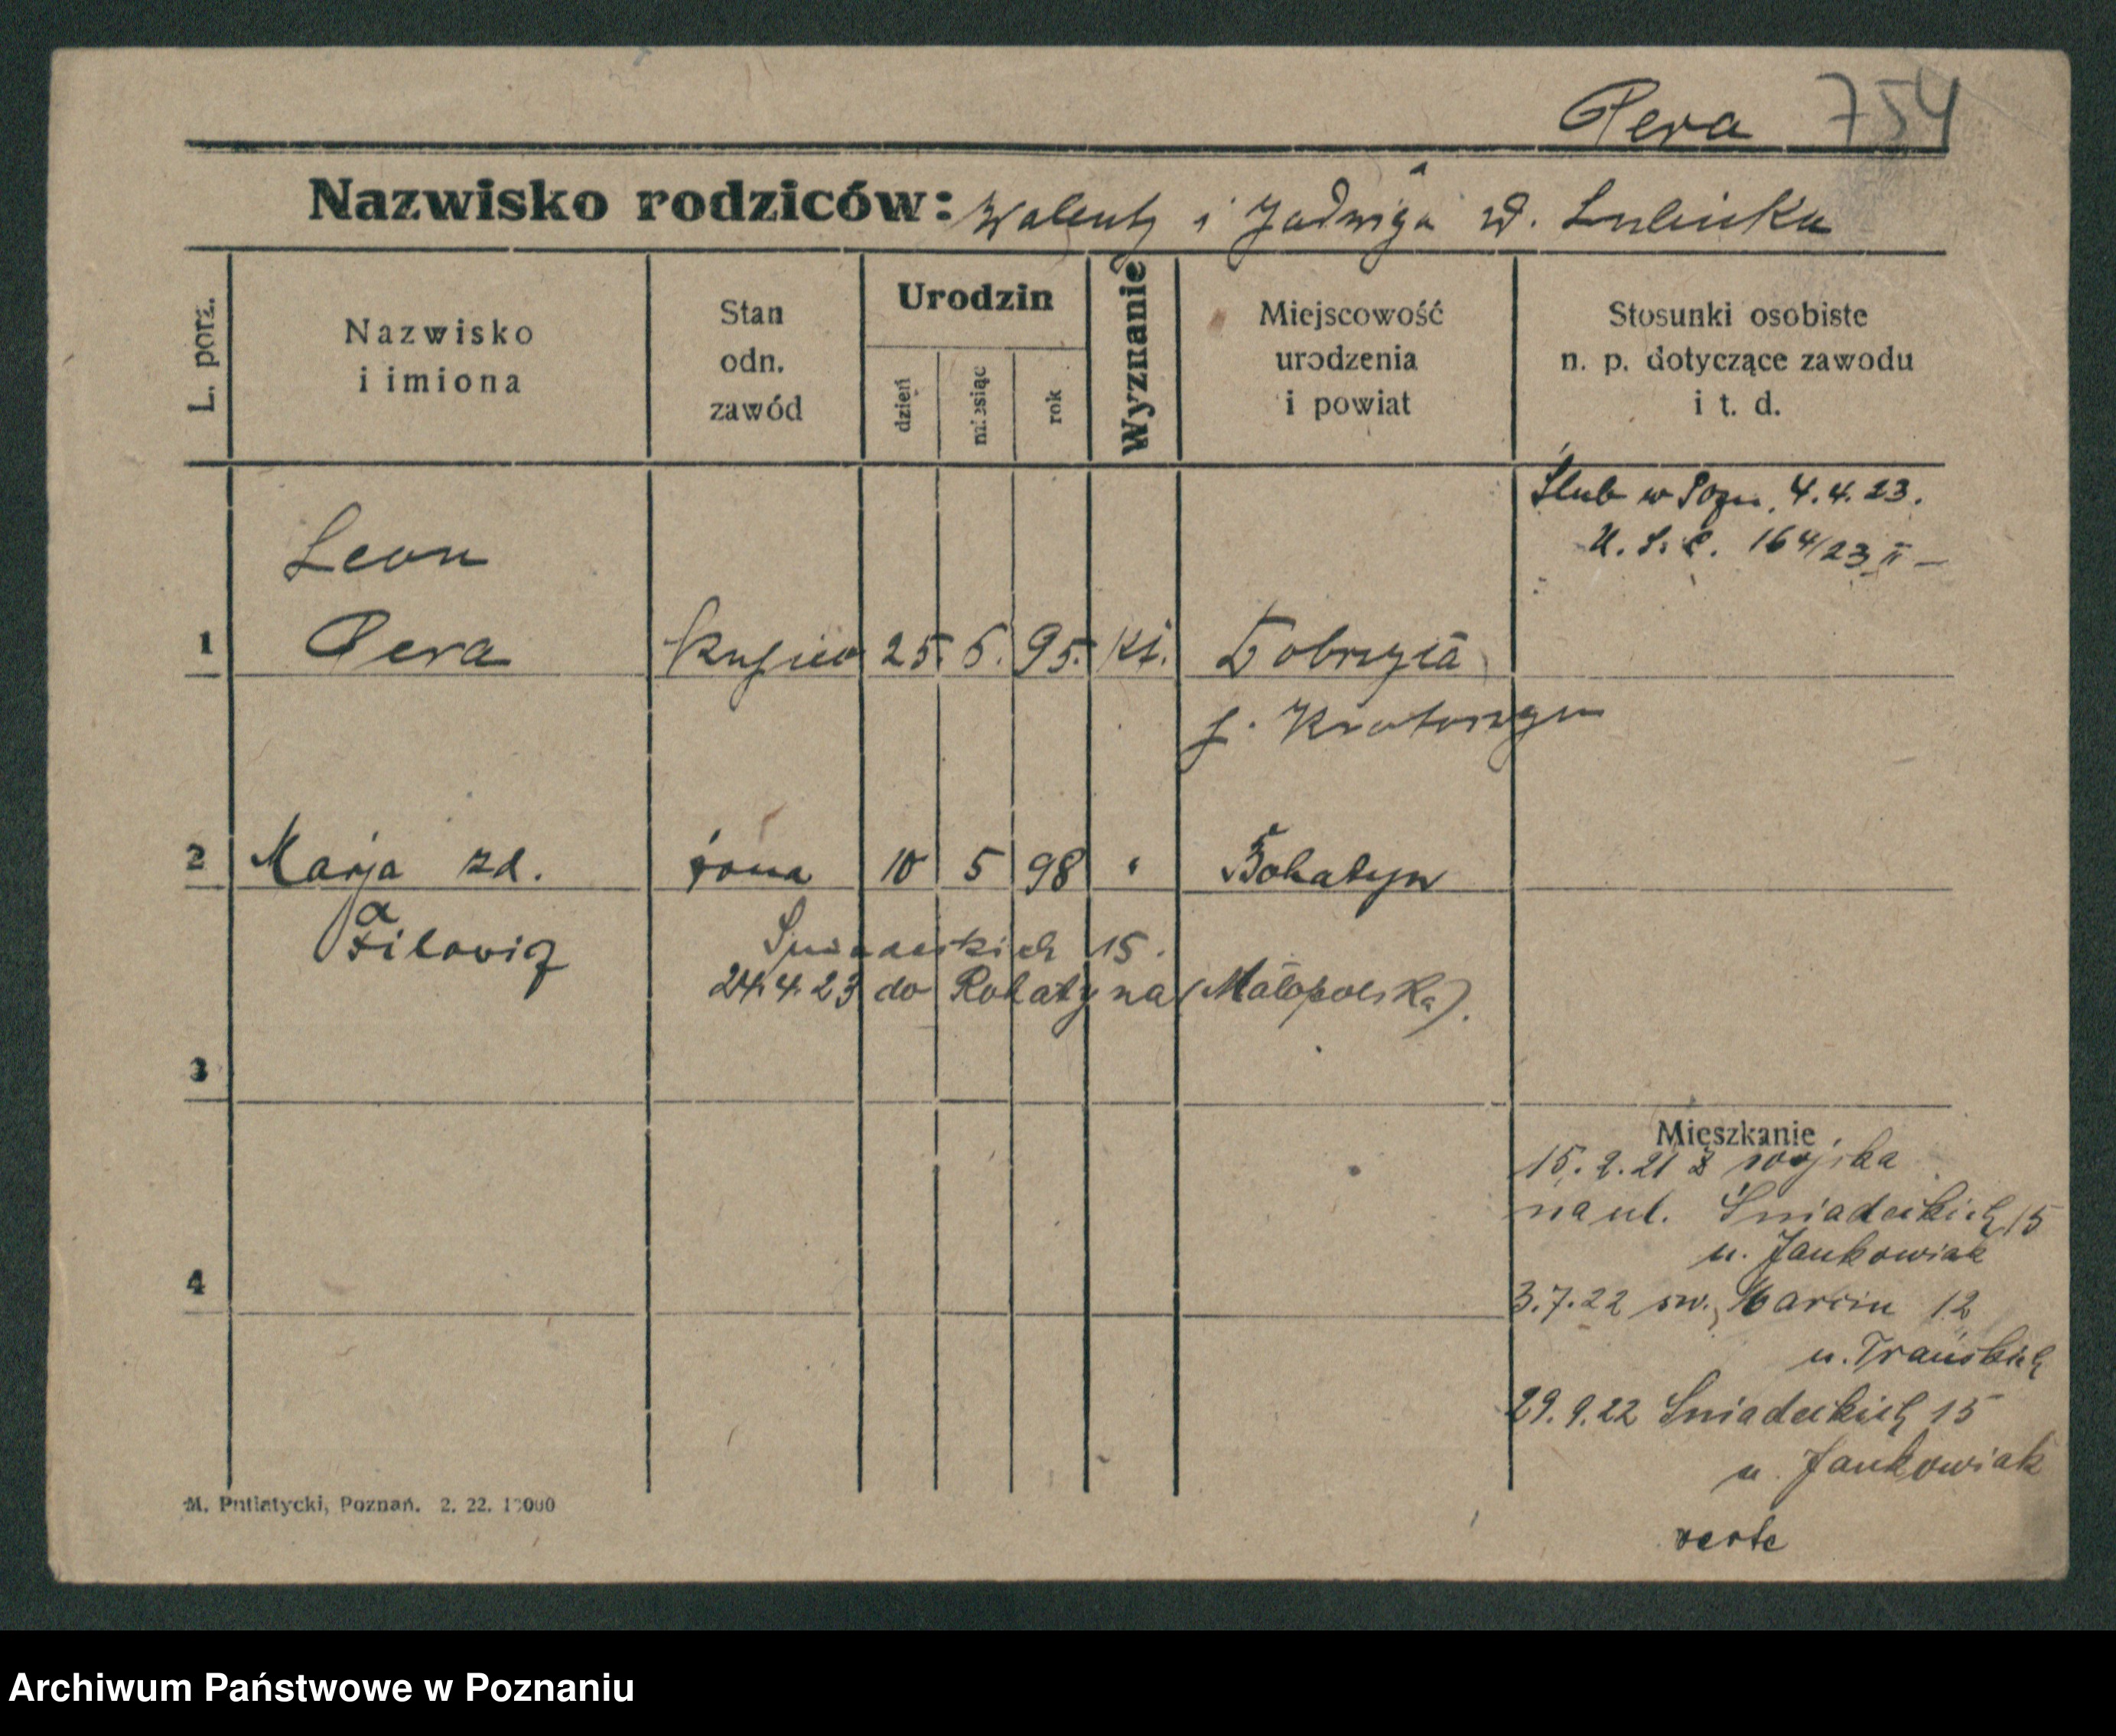 Pera 754
Nazwisko rodziców: Walenty i Jadwiga zd.
L. porz.
Nazwisko
i imiona
Stan
odn.
zawód
Urodzin
dzień
miesiąc
rok
Wyznanie
Miejscowość
urodzenia
i powiat
Stosunki osobiste
n. p. dotyczące zawodu
i t. d.
Ślub w Pozn. 4.4.23.
U. S. C. 164/23 II –
Leon
1 Pera 25. 5. 95. kt. Dobrzyca
p. Krotoszyn
2 Marja zd. żona 10 5 98 " Rohatyn
Śniadeckich 15.
24.4.23 do Rohatyna (Małopolska).
3
Mieszkanie
15.2.21 z wojska
na ul. Śniadeckich 15
u. Jankowiak
4
3.7.22 św. Marcin 12
u.
29.9.22 Sniadeckich 15
u. Jankowiak
verte
M. Putiatycki, Poznań. 2. 22.
Archiwum Państwowe w Poznaniu